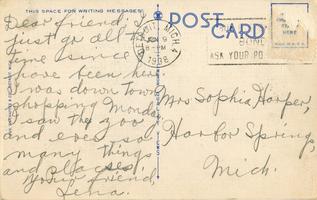 THIS SPACE FOR WRITING MESSAGES
POST CARD
Dear friend,
just go all
time since
have been here
I was down town
shopping Monday
I saw the zoo
and ever so
many things
and places.
Your friend,
Lena.
DETROIT, MICH.
9
8-PM
1938
ASK YOUR PO
HERE
Mrs Sophia Harper,
Harbor Springs,
Mich.